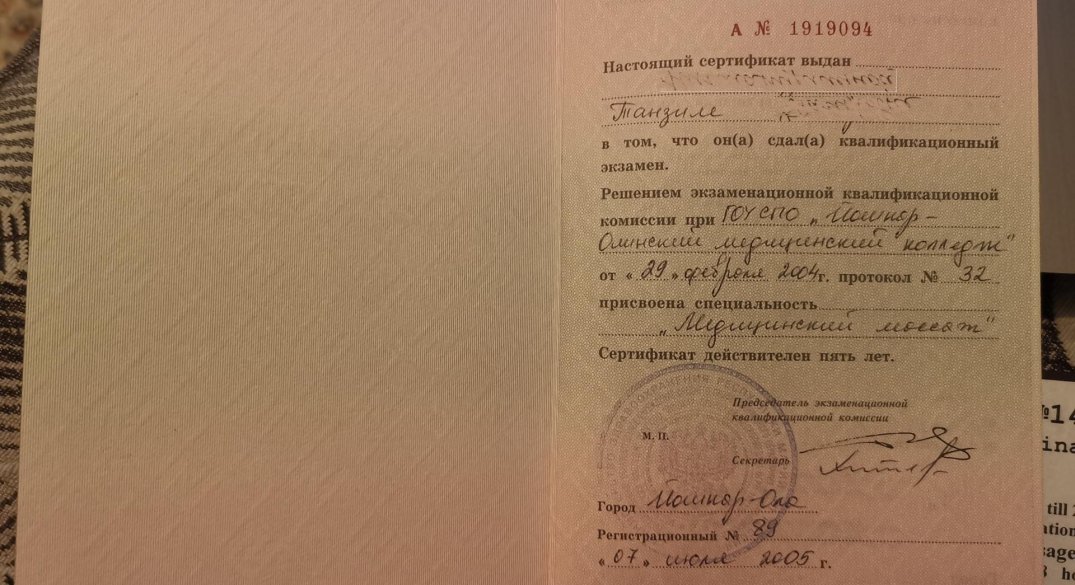 А № 1919094
Настоящий сертификат выдан
Танзиле
в том, что он(а) сдал(а) квалификационный
экзамен.
Решением экзаменационной квалификационной
комиссии при ГОУ СПО „Йошкар-
Олинский медицинский колледж“
от « 29 » февраля 2004 г. протокол № 32
присвоена специальность
„Медицинский массаж“
Сертификат действителен пять лет.
Председатель экзаменационной
квалификационной комиссии
М. П.
Секретарь
Город Йошкар-Ола
Регистрационный № 89
« 07 » июля 2005 г.
№14
ina
till
ation
age